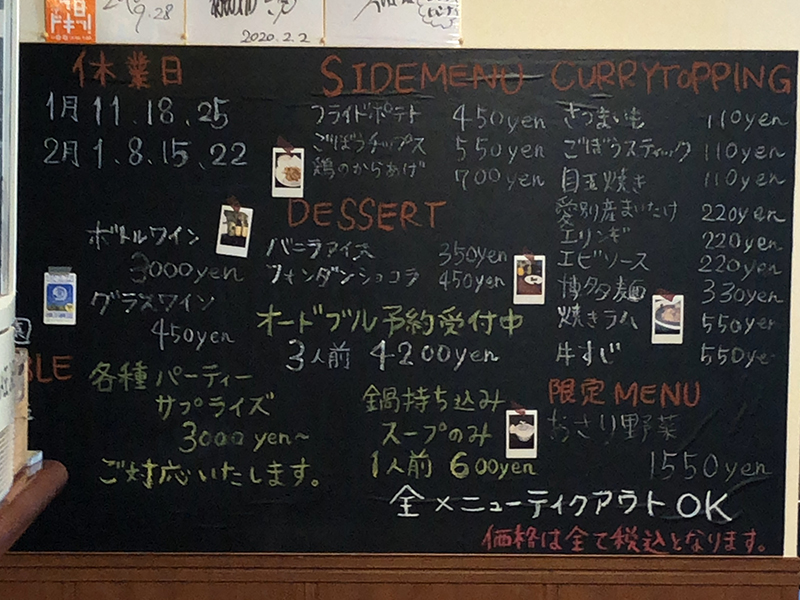 9.28
2020.2.2
休業日
1月 11.18.25
2月 1.8.15.22
SIDEMENU
フライドポテト 450yen
ごぼうチップス 550yen
鶏のからあげ 700yen
CURRYTOPPING
さつまいも 110yen
ごぼうスティック 110yen
目玉焼き 110yen
愛別産まいたけ 220yen
エリンギ 220yen
エビソース 220yen
博多麺 330yen
焼きラム 550yen
牛すじ 550ye
DESSERT
バニラアイス 350yen
フォンダンショコラ 450yen
ボトルワイン
3000yen
グラスワイン
450yen
オードブル予約受付中
3人前 4200yen
BLE
各種パーティー
サプライズ
3000yen~
ご対応いたします。
鍋持ち込み
スープのみ
1人前 600yen
限定MENU
あさり野菜
1550yen
全メニューテイクアウトOK
価格は全て税込となります。